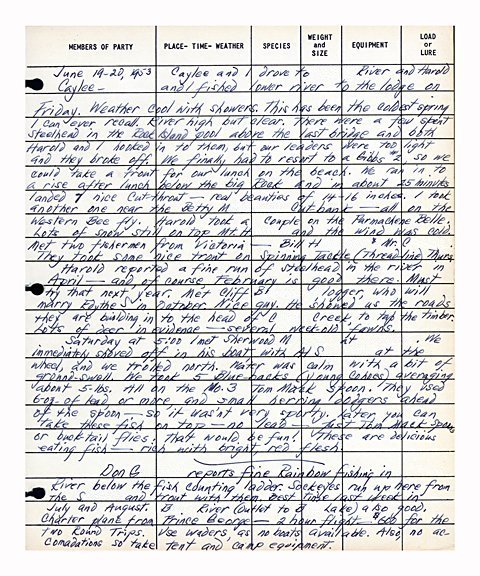 MEMBERS OF PARTY PLACE- TIME- WEATHER SPECIES WEIGHT and SIZE EQUIPMENT LOAD or LURE
June 19-20, 1953 Caylee and I drove to River and Harold
Caylee - and I fished lower river to the lodge on
Friday. Weather cool with showers. This has been the coldest spring
I can ever recall. River high but clear. There were a few spent
Steelhead in the Rock Island pool above the last bridge and both
Harold and I hooked in to them, but our leaders were too light
and they broke off. We finally had to resort to a Gibbs #2, so we
could take a trout for our lunch on the beach. We ran in to
a rise after lunch below the big Rock and in about 25 minutes
landed 7 nice Cut-throat - real beauties of 14-16 inches. I took
another one near the Betty M Cut-bank - all on the
Western Bee fly. Harold took a couple on the Parmachene Belle.
Lots of snow still on top Mt. H and the wind was cold.
Met two fishermen from Victoria - Bill H & Mr. C
They took some nice trout on Spinning Tackle (Thread-line) Thurs.
Harold reported a fine run of Steelhead in the river in
April - and of course February is good there. Must
try that next year. Met Cliff S logger who will
marry Edythe S in October. Nice guy. He showed us the roads
they are building in to the head of C Creek to tap the timber.
Lots of deer in evidence - several week-old fawns.
Saturday at 5:00 I met Sherwood M at . We
immediately shoved off in his boat with Al S at the
wheel, and we trolled north. Water was calm with a bit of
ground-swell. We took 5 Blue-backs (young Cohoes) averaging
about 5-lbs. All on the No. 3 Tom Mack Spoon. They used
6-oz. of lead or more and small herring dodgers ahead
of the spoon - so it wasn't very sporty. Later you can
take these fish on top - no lead - just Tom Mack Spoon
or bucktail flies. That would be fun! These are delicious
eating fish - rich with bright red flesh.
Don G. reports fine Rainbow fishing in
River below the fish counting ladder. Sockeyes run up here from
the S and trout with them. Best time last week in
July and August. B River (outlet to B Lake) also good.
Charter plane from Prince George - 2 hour flight. $60 for the
two Round Trips. Use waders, as no boats available. Also no ac-
comadations so take tent and camp equipment.